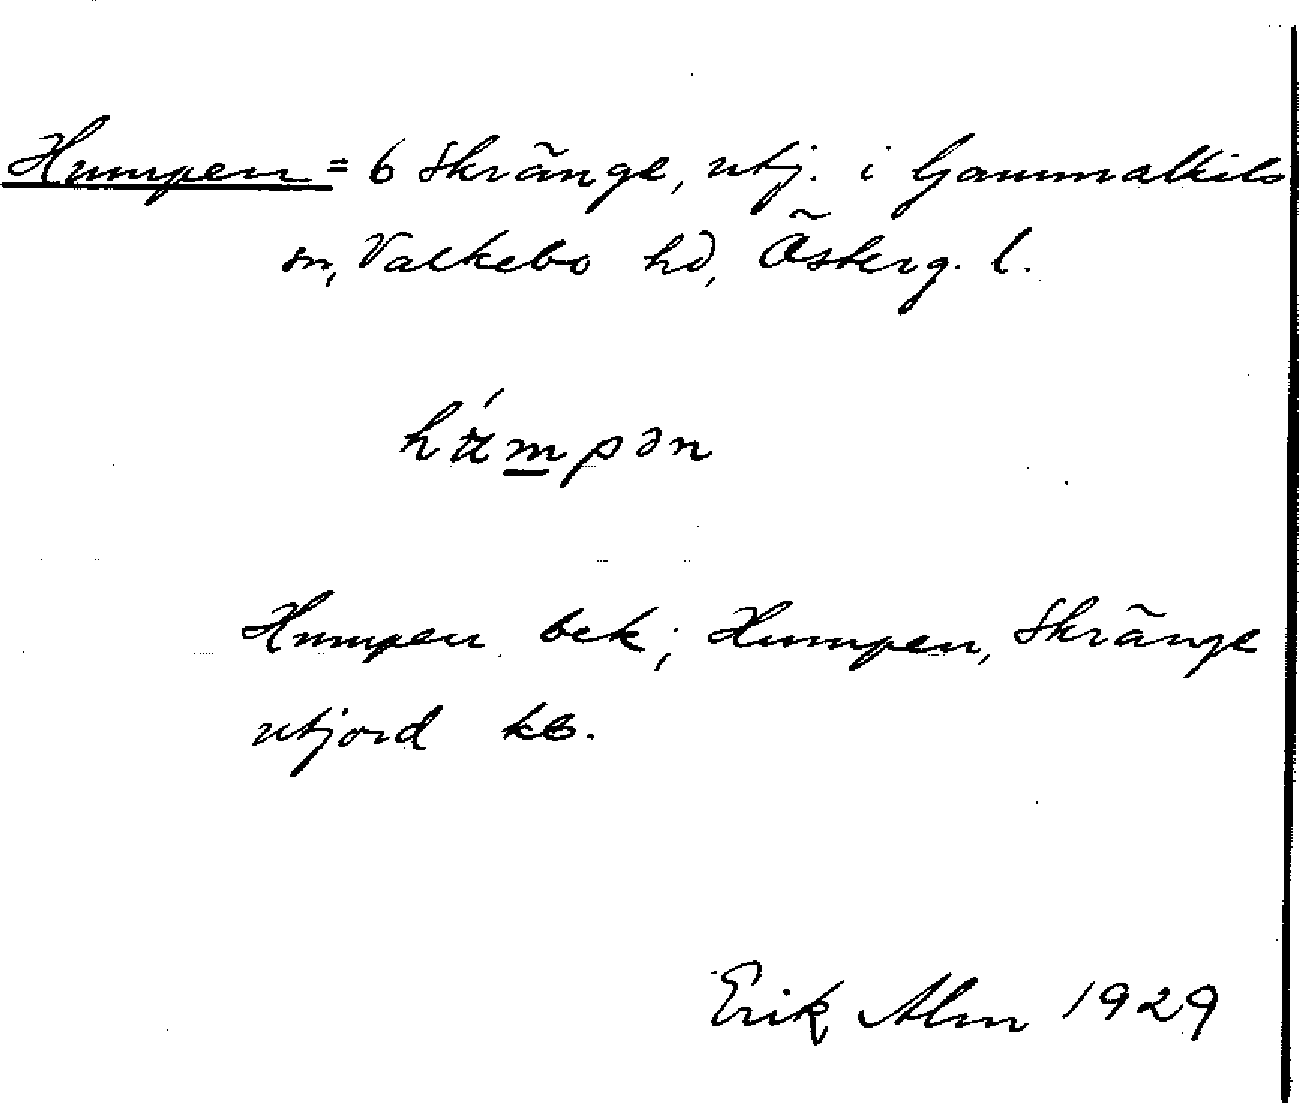 Humpen = 6 Skränge, utj. i Gammalkils
sn, Valkebo hd, Österg. l.
Humpen bek; Humpen, Skränge
utjord kb.
Erik Alm 1929